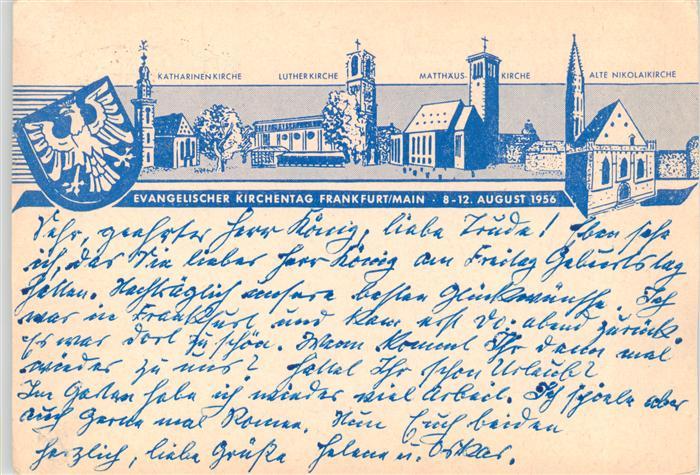 KATHARINENKIRCHE
LUTHERKIRCHE
MATTHÄUS-KIRCHE
ALTE NIKOLAIKIRCHE
EVANGELISCHER KIRCHENTAG FRANKFURT/MAIN · 8-12. AUGUST 1956
Sehr, geehrter Herr König, liebe Trude! Eben sehe
ich, das Sie lieber Herr König am Freitag Geburtstag
hatten. Nachträglich unsere besten Glückwünsche. Ich
war in Frankfurt und kam erst Do. abend zurück.
Es war dort zu schön. Wann kommt Ihr denn mal
wieder zu uns? Hattet Ihr schon Urlaub?
Im Garten habe ich wieder viel Arbeit. Ich
auch gerne mal kommen. Nun Euch beiden
herzlich, liebe Grüße Helene u.